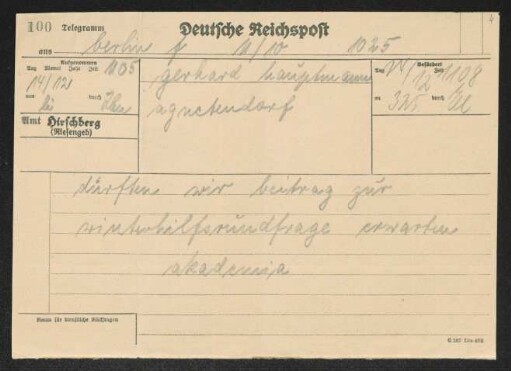 100 Telegramm Deutsche Reichspost
aus berlin f 11/10 1025
Aufgenommen
Tag Monat Jahr Zeit 1105
14/12
von durch
Amt Hirschberg
(Riesengeb)
gerhard hauptmann
agnetendorf
Befördert
Tag Zeit
14/12 1108
an 325 durch
dürften wir beitrag zur
winterhilfsrundfrage erwarten
akademia
Raum für dienstliche Rückfragen